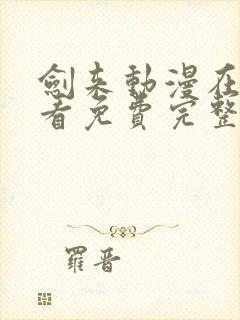 劍来動漫在
看免費完整
羅晋